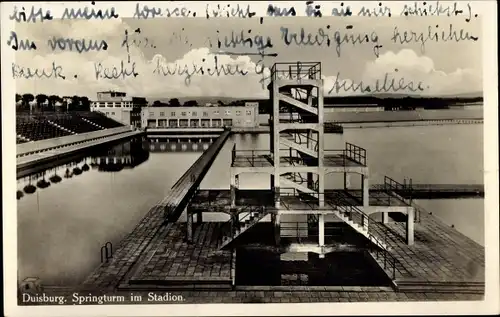 bitte meine Adresse. (Nicht, das Du sie mir schickst).
Im voraus für die richtige Erledigung herzlichen
Dank. Recht herzlichen Gruß
Anneliese.
Duisburg. Springturm im Stadion.